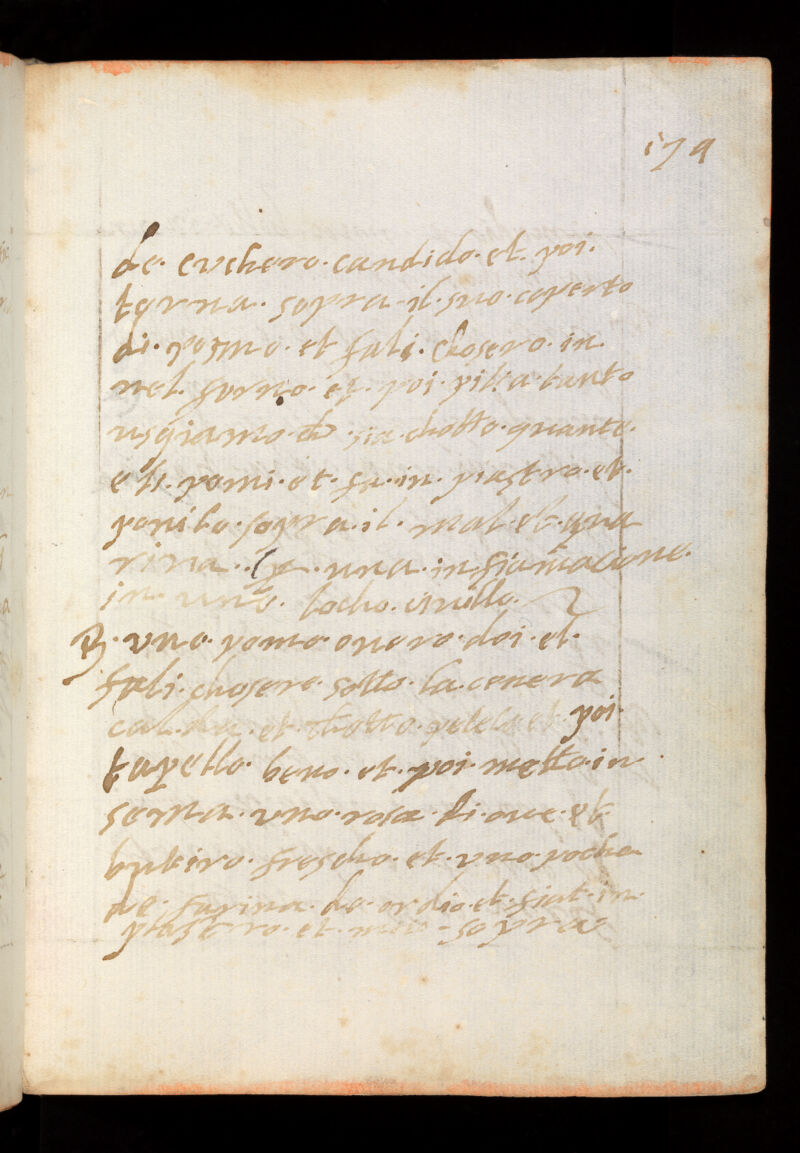 179
de cvchero candido et poi
torna sopra il suo coperto
di pomo et fali chosero in
nel forno et poi pista tanto
usgiamo che sia chotto quanto
eli pomi et fa in piastro et
ponilo sopra il mal et gua
rira una infiamacione
in uno locho
R. vno pomo overo doi et
fali chosere sotto la cenera
calda et chotto pelelo et poi
tapello beno et poi metto in
sema vno roso di ovo et
butiro frescho et vno pocho
de farina de ordio et fiat in
piastro et meti sopra